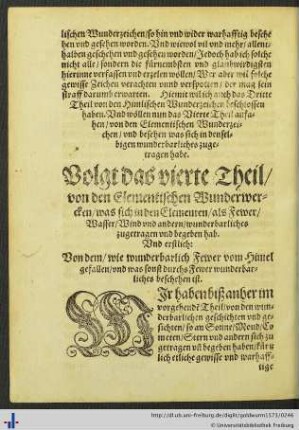 lischen Wunderzeichen/so hin vnd wider warhafftig besche
hen vnd gesehen worden. Vnd wiewol vil vnd mehr/ allent-
halben geschehen vnd gesehen worden/Jedoch hab ich solche
nicht alle/ sondern die fürnembsten vnd glaubwirdigsten
hierinne verfassen vnd erzelen wöllen/ Wer aber wil solche
gewisse Zeichen verachten vnnd verspotten/ der mag sein
straff darumb erwarten. Hiemit wil ich auch das Dritte
Theil von den Himlischen Wunderzeichen beschlossen
haben. Vnd wöllen nun das Vierte Theil anfa-
hen/ von den Elementischen Wunderzei-
chen/ vnd besehen was sich in densel-
bigen wunderbarliches zuge-
tragen habe.
Volgt das vierte Theil/
von den Elementischen Wunderwer-
cken/was sich in den Elementen/ als Fewer/
Wasser/ Wind vnd andern/wunderbarliches
zugetragen vnd begeben hab.
Vnd erstlich:
Von dem/ wie wunderbarlich Fewer vom Himel
gefallen/ vnd was sonst durchs Fewer wunderbar-
liches beschehen ist.
WIr haben biß anher im
vorgehendẽ Theil/von den wun-
derbarlichen geschichten vnd ge-
sichten/ so an Sonne/ Mond/ Co
meten/ Stern vnd andern sich zu
getragen vñ begeben haben/für v̈
lich etliche gewisse vnd warhaff-
tige
http://dl.ub.uni-freiburg.de/diglit/goldwurm1573/0246
© Universitätsbibliothek Freiburg